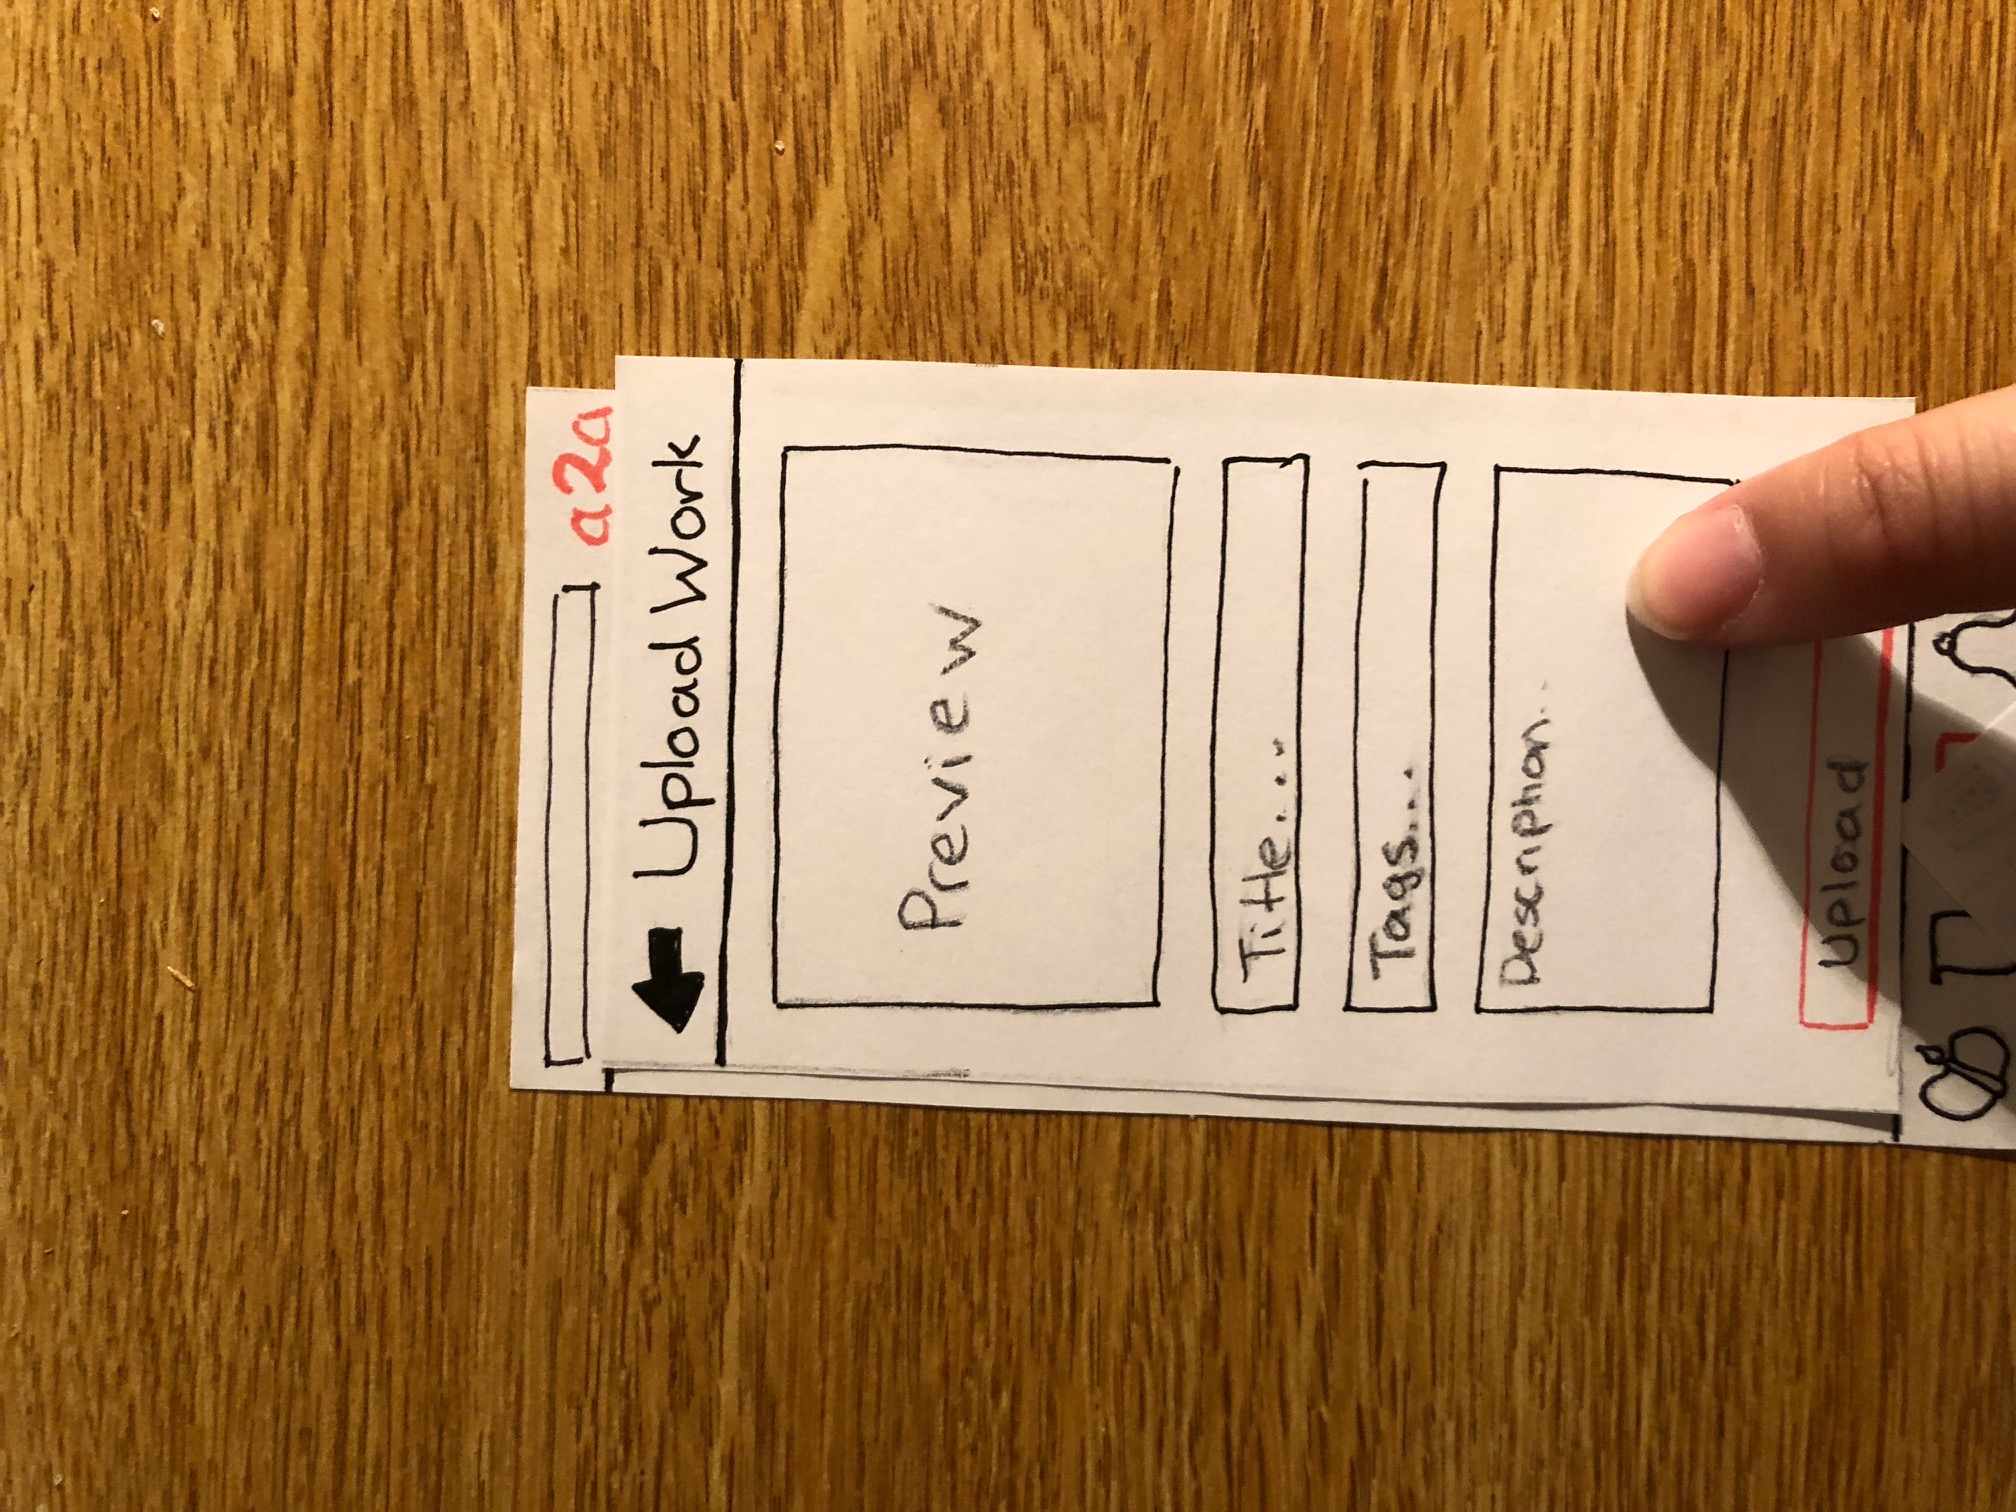 a2a
Upload Work
Preview
Title...
Tags...
Description..
Upload